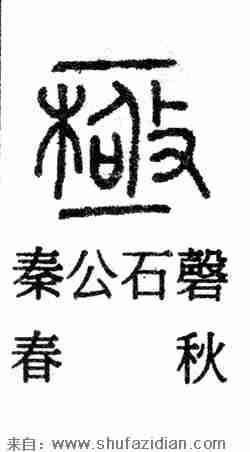 極
秦公石磬
春秋
来自：www.shufazidian.com